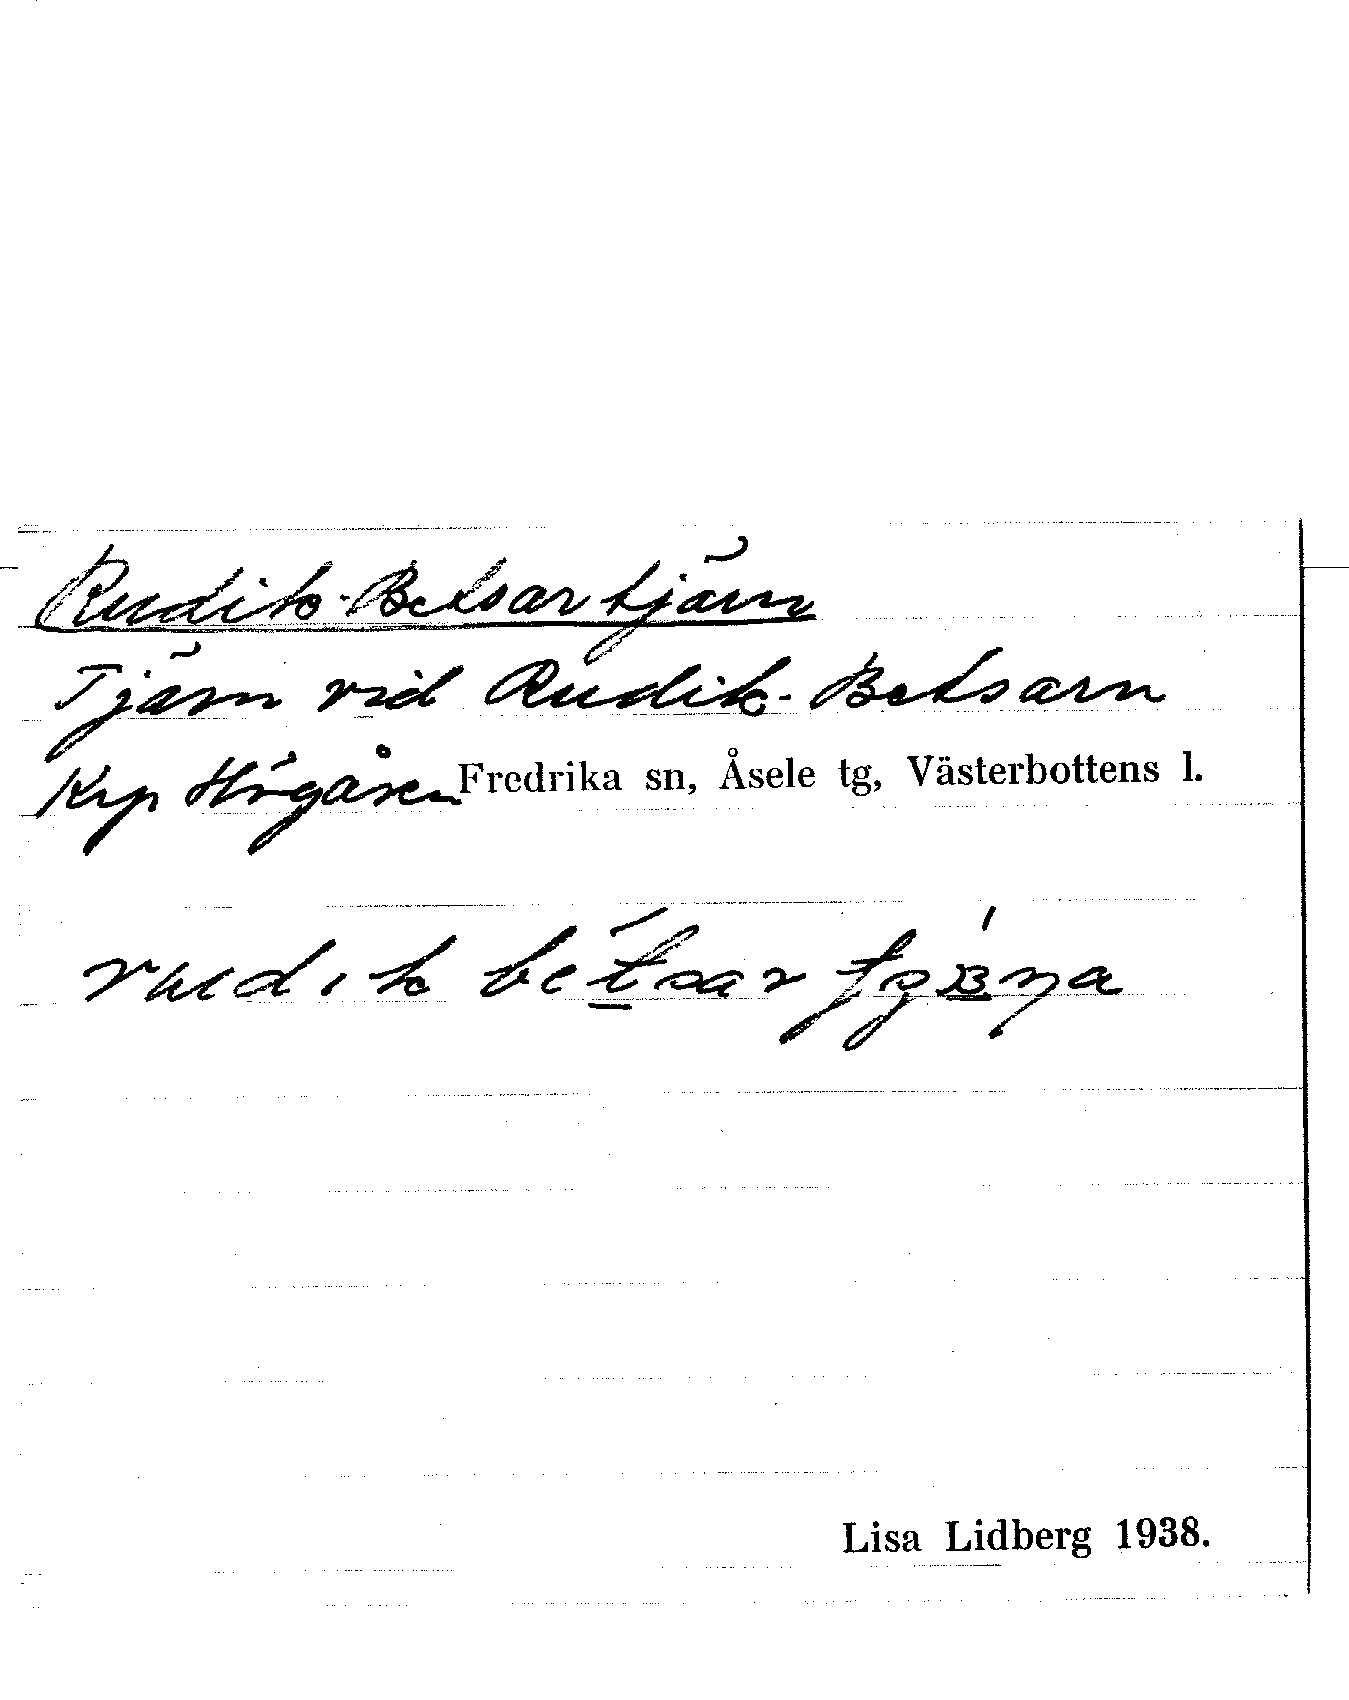 Rudik-Betsartjärn
Tjärn vid Rudik-Betsarn
Krp Högåsen Fredrika sn, Åsele tg, Västerbottens l.
Lisa Lidberg 1938.